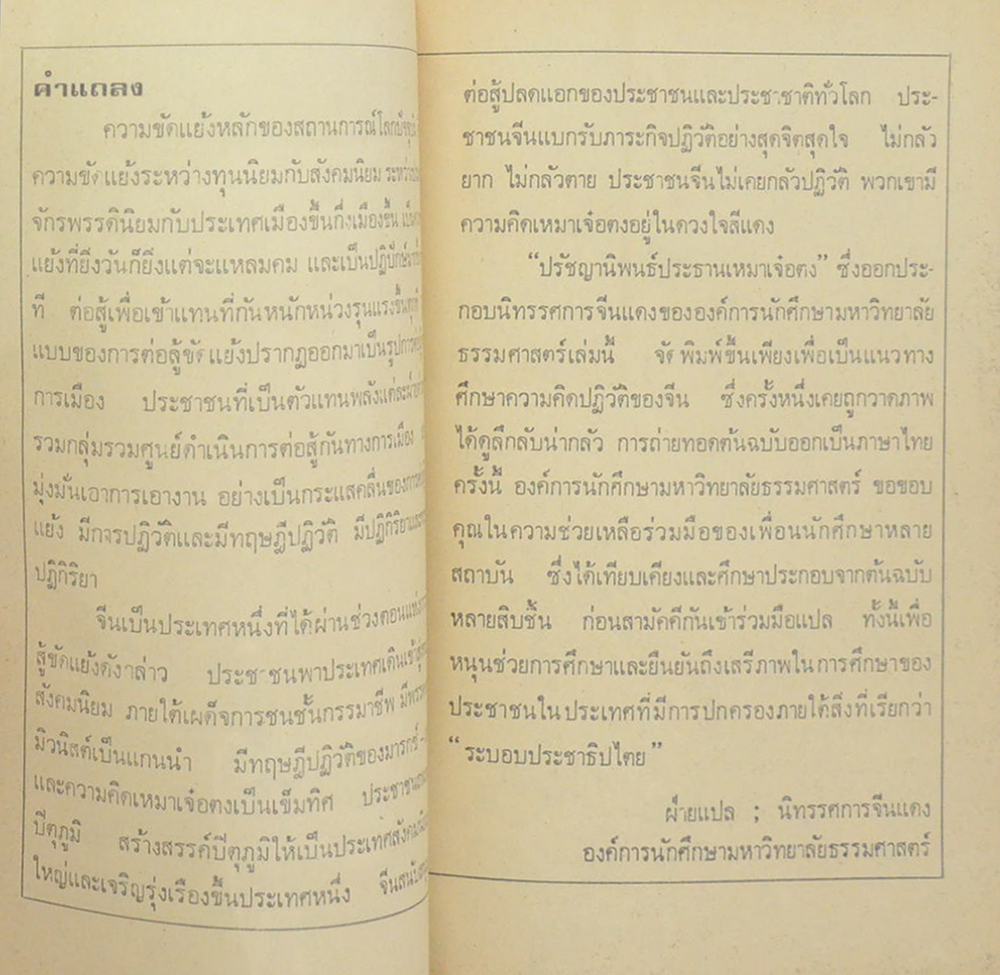 คำแถลง
ความขัดแย้งหลักของสถานการณ์โลกปัจจุบัน
ความขัดแย้งระหว่างทุนนิยมกับสังคมนิยม ระหว่าง
จักรพรรดินิยมกับประเทศเมืองขึ้นกึ่งเมืองขึ้น
แย้งที่ยิ่งวันก็ยิ่งแต่จะแหลมคม และเป็นปฏิปักษ์
ที ต่อสู้เพื่อเข้าแทนที่กันหนักหน่วงรุนแรงขึ้นทุกที
แบบของการต่อสู้ขัดแย้งปรากฏออกมาเป็นรูปการ
การเมือง ประชาชนที่เป็นตัวแทนพลังแต่ละฝ่าย
รวมกลุ่มรวมศูนย์ดำเนินการต่อสู้กันทางการเมือง
มุ่งมั่นเอาการเอางาน อย่างเป็นกระแสคลื่นของการ
แย้ง มีการปฏิวัติและมีทฤษฎีปฏิวัติ มีปฏิกิริยาและ
ปฏิกิริยา
จีนเป็นประเทศหนึ่งที่ได้ผ่านช่วงตอนแห่ง
สู้ขัดแย้งดังกล่าว ประชาชนพาประเทศเดินเข้าสู่
สังคมนิยม ภายใต้เผด็จการชนชั้นกรรมาชีพ มีพรรค
มิวนิสต์เป็นแกนนำ มีทฤษฎีปฏิวัติของมาร์กซ์–
และความคิดเหมาเจ๋อตงเป็นเข็มทิศ ประชาชน
ปีตุภูมิ สร้างสรรค์ปีตุภูมิให้เป็นประเทศสังคม
ใหญ่และเจริญรุ่งเรืองขึ้นประเทศหนึ่ง จีนสนับ
ต่อสู้ปลดแอกของประชาชนและประชาชาติทั่วโลก ประ-
ชาชนจีนแบกรับภาระกิจปฏิวัติอย่างสุดจิตสุดใจ ไม่กลัว
ยาก ไม่กลัวตาย ประชาชนจีนไม่เคยกลัวปฏิวัติ พวกเขามี
ความคิดเหมาเจ๋อตงอยู่ในดวงใจสีแดง
“ปรัชญานิพนธ์ประธานเหมาเจ๋อตง” ซึ่งออกประ-
กอบนิทรรศการจีนแดงขององค์การนักศึกษามหาวิทยาลัย
ธรรมศาสตร์เล่มนี้ จัดพิมพ์ขึ้นเพียงเพื่อเป็นแนวทาง
ศึกษาความคิดปฏิวัติของจีน ซึ่งครั้งหนึ่งเคยถูกวาดภาพ
ได้ดูลึกลับน่ากลัว การถ่ายทอดต้นฉบับออกเป็นภาษาไทย
ครั้งนี้ องค์การนักศึกษามหาวิทยาลัยธรรมศาสตร์ ขอขอบ
คุณในความช่วยเหลือร่วมมือของเพื่อนนักศึกษาหลาย
สถาบัน ซึ่งได้เทียบเคียงและศึกษาประกอบจากต้นฉบับ
หลายสิบชิ้น ก่อนสามัคคีกันเข้าร่วมมือแปล ทั้งนี้เพื่อ
หนุนช่วยการศึกษาและยืนยันถึงเสรีภาพในการศึกษาของ
ประชาชนในประเทศที่มีการปกครองภายใต้สิ่งที่เรียกว่า
“ระบอบประชาธิปไตย”
ฝ่ายแปล ; นิทรรศการจีนแดง
องค์การนักศึกษามหาวิทยาลัยธรรมศาสตร์